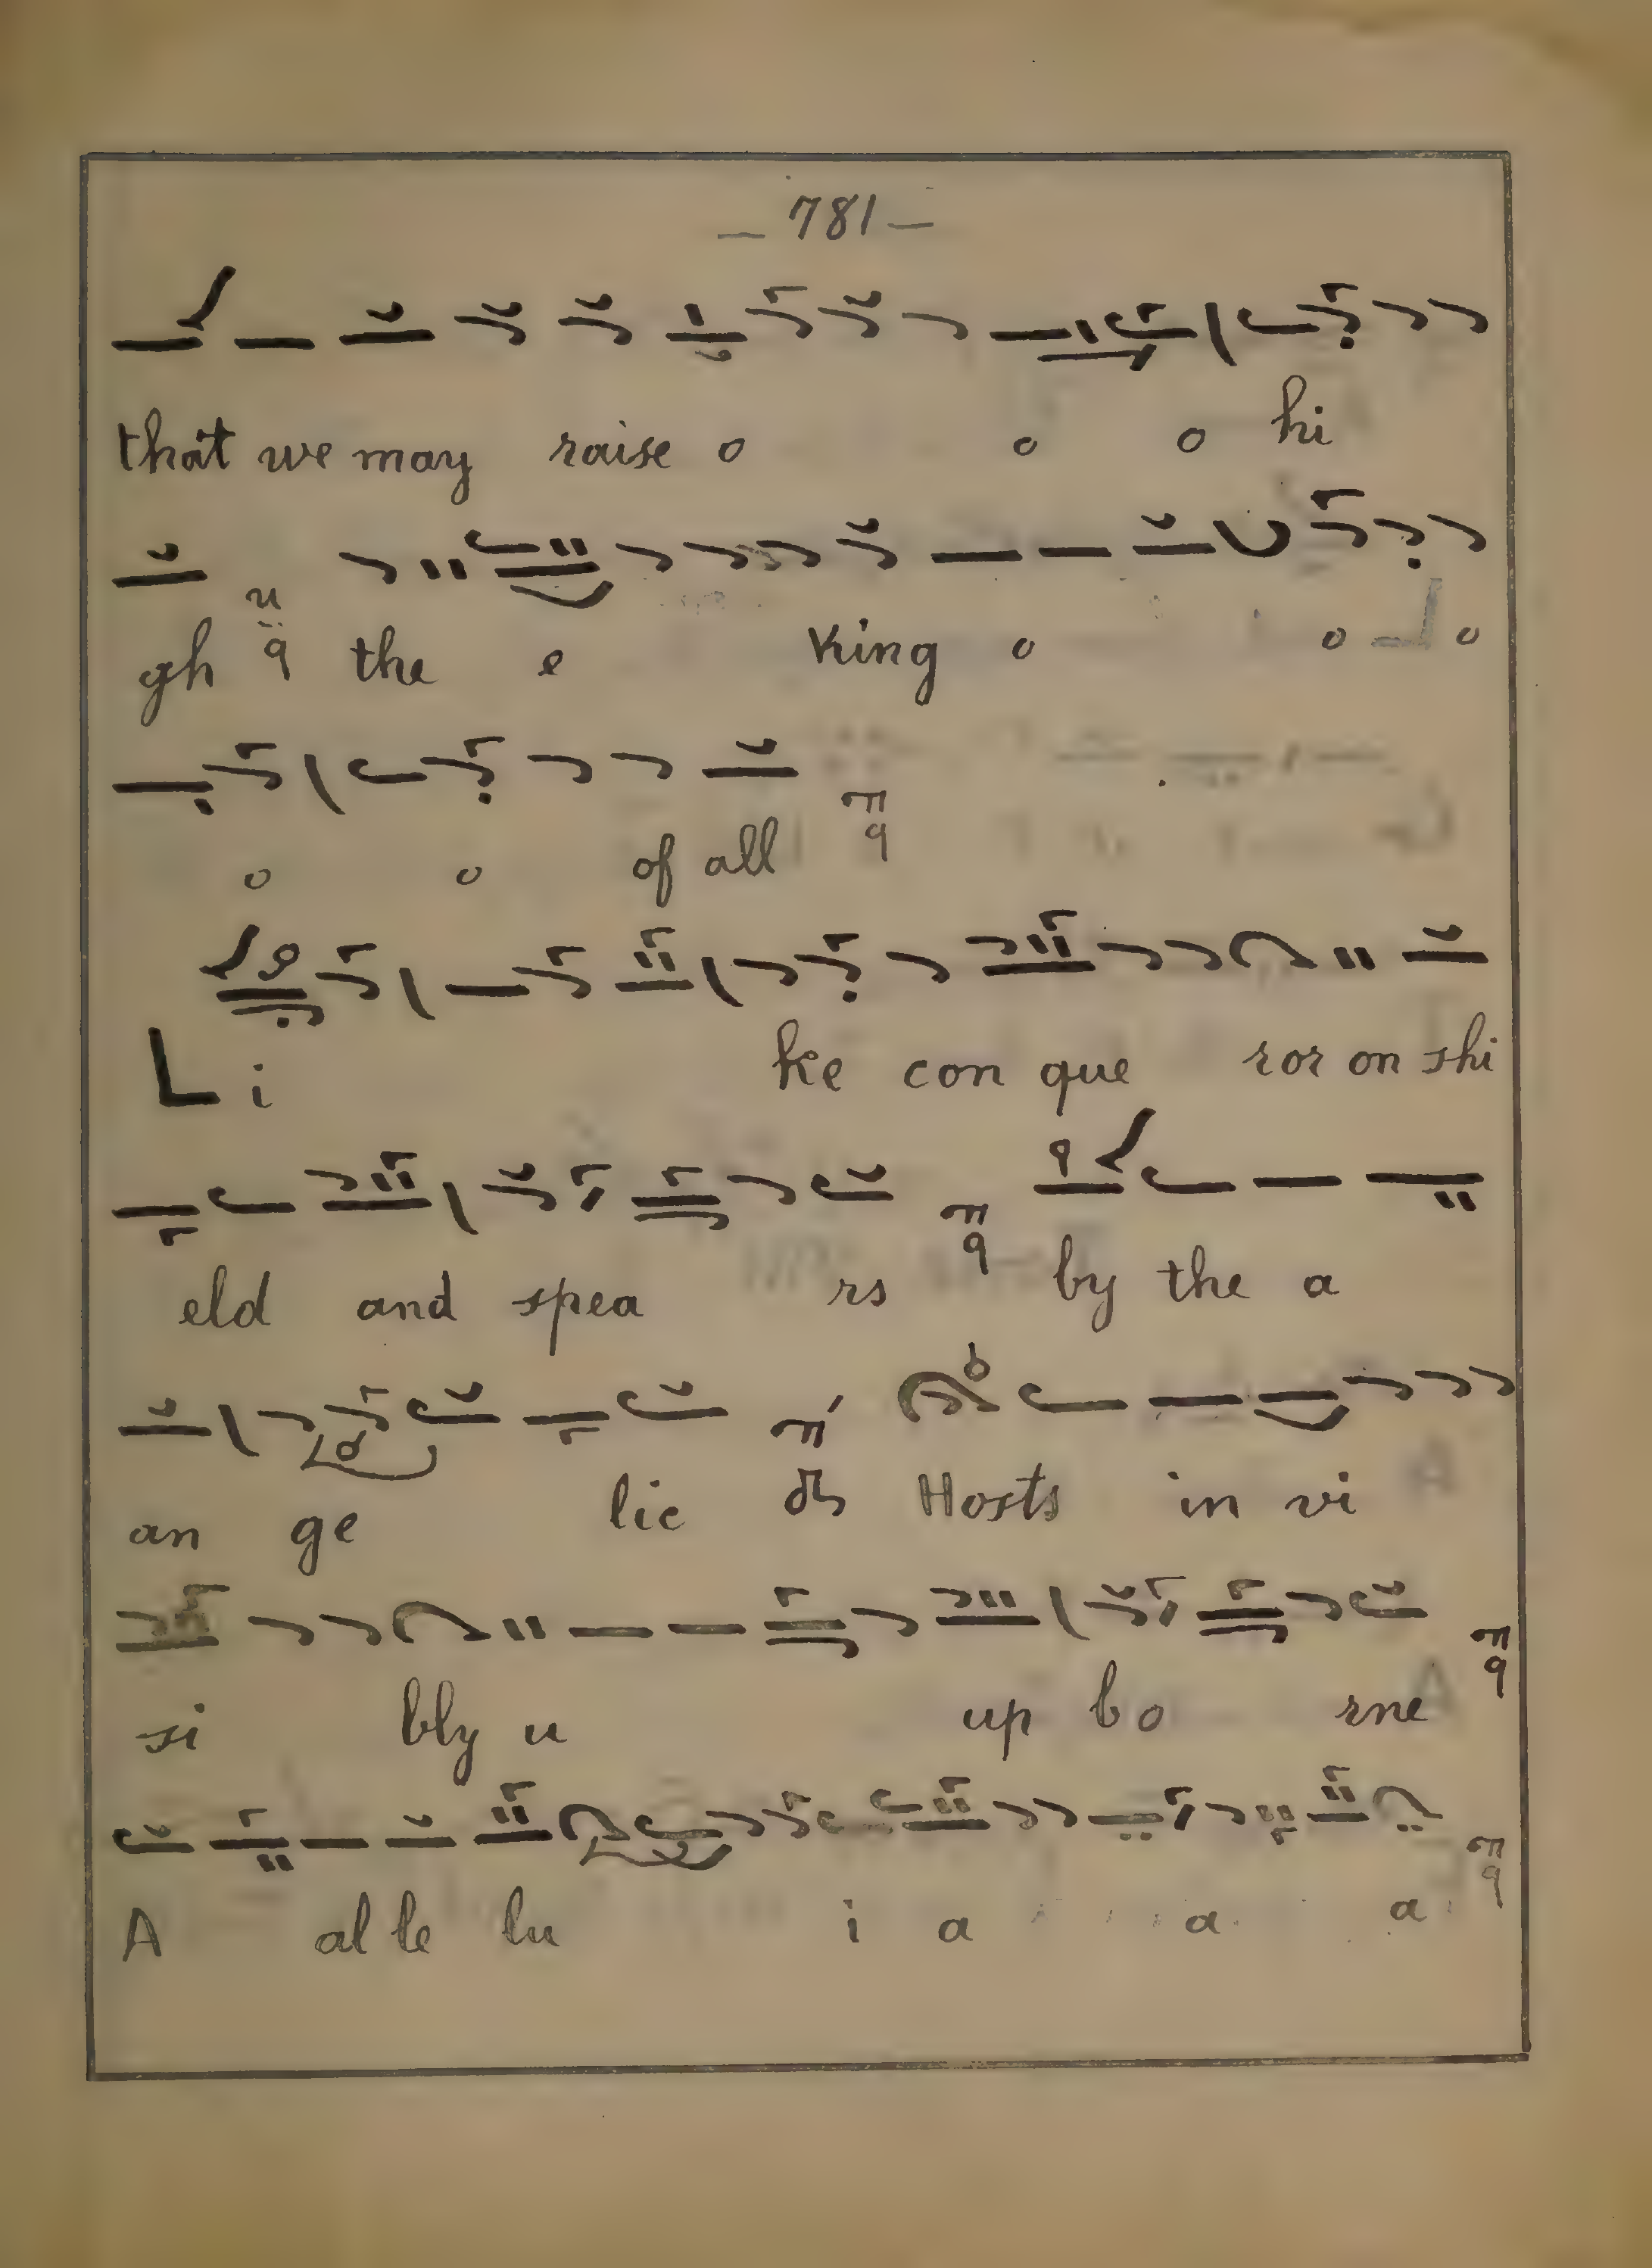 — 781 —
that we may raise o o o hi
gh the e King o o o
o o of all
Li ke con que ror on shi
eld and spea rs by the a
an ge lic Hosts in vi
si bly u up bo rne
A al le lu i a a a